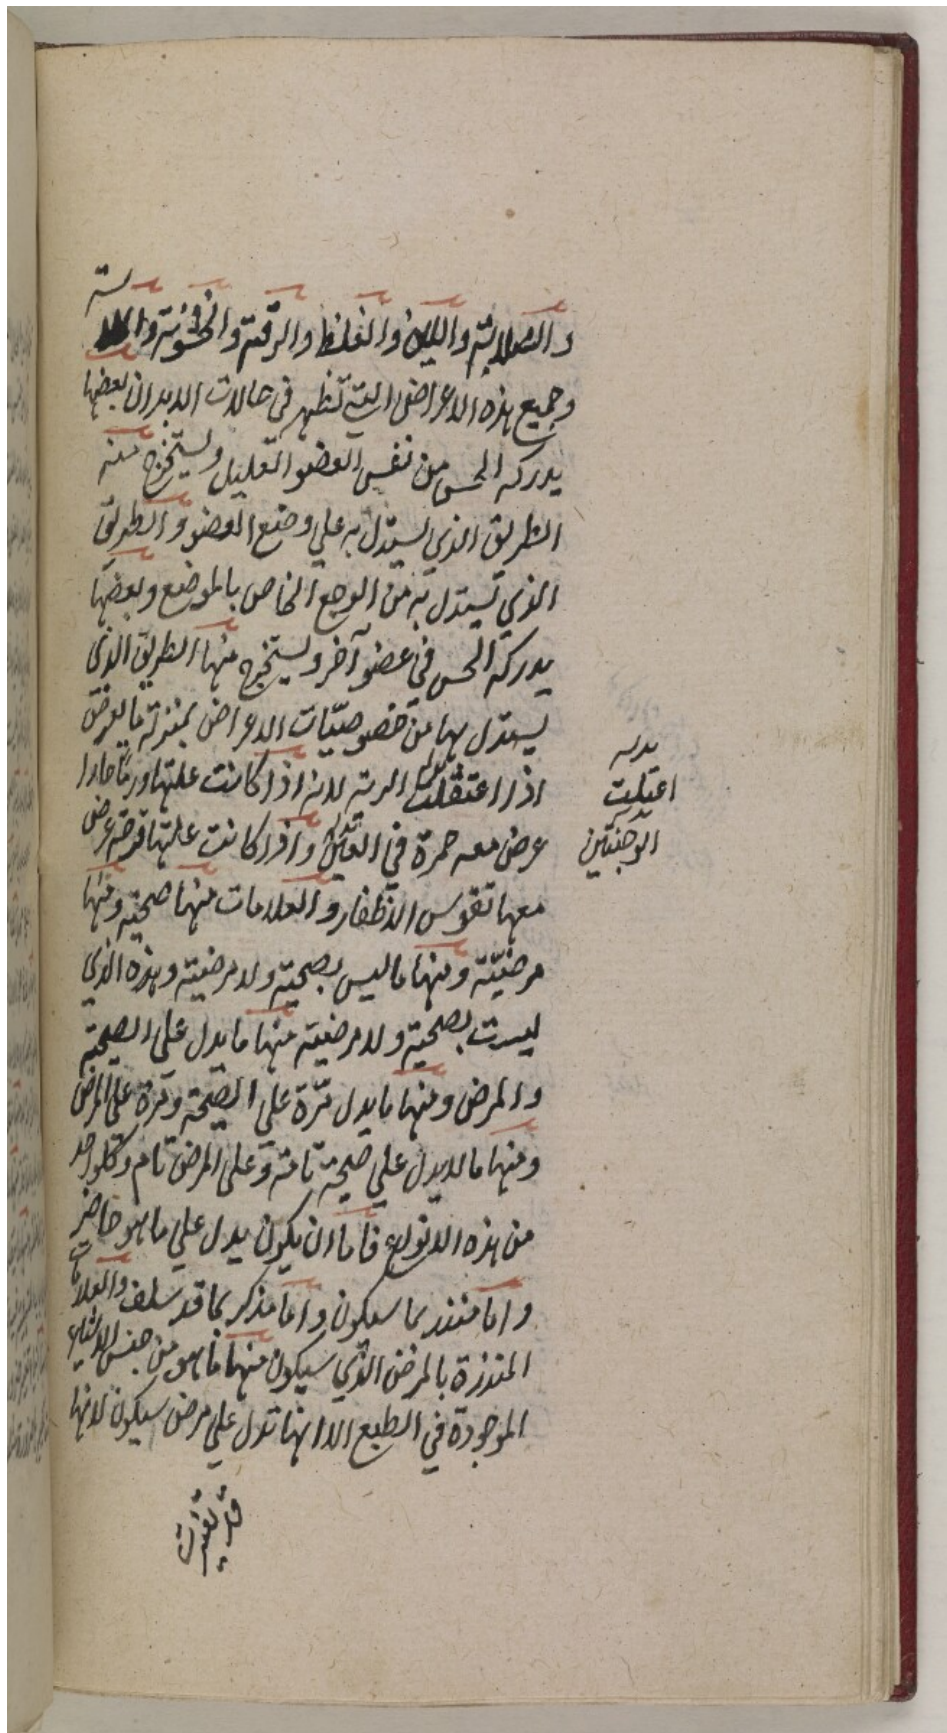 والصلابة واللين والغلظ والرقة والخشونة والملاسة
وجميع هذه الاعراض التي تظهر في حالات الابدان بعضها
يدركه الحس من نفس العضو العليل ويستخرج منه
الطريق الذي يستدل به علي وضع العضو والطريق
الذي تستدل به من الوجع الخاص بالموضع وبعضها
يدركه الحس في عضو آخر ويستخرج منها الطريق الذي
يستدل بها من خصوصيّات الاعراض بمنزلة ما يعرض
اذا اعتقلت الرئة لانه اذا كانت علتها ورمًا حارا
عرض معه حمرة في العين واذا كانت علتها قرحة عرض
معها تقوس الاظفار والعلامات منها صحية ومنها
مرضيّة ومنها ما ليس بصحية ولا مرضية وهذه الذي
ليست بصحية ولا مرضية منها ما يدل علي الصحة
والمرض ومنها ما يدل مرّة علي الصحة ومرة علي المرض
ومنها ما لا يدل علي صحة تامة وعلى المرض تام وكلواحد
من هذه الانواع فاما ان يكون يدل علي ما هو حاضر
واما منذر بما سيكون واما مذكر بما قد سلف والعلامات
المنذرة بالمرض الذي سيكون منها ما هو من جنس الاشياء
الموجودة في الطبع الا انها تدل علي مرض سيكون لانها
قد تغيرت
بدله
اعتلت
الوجنتين